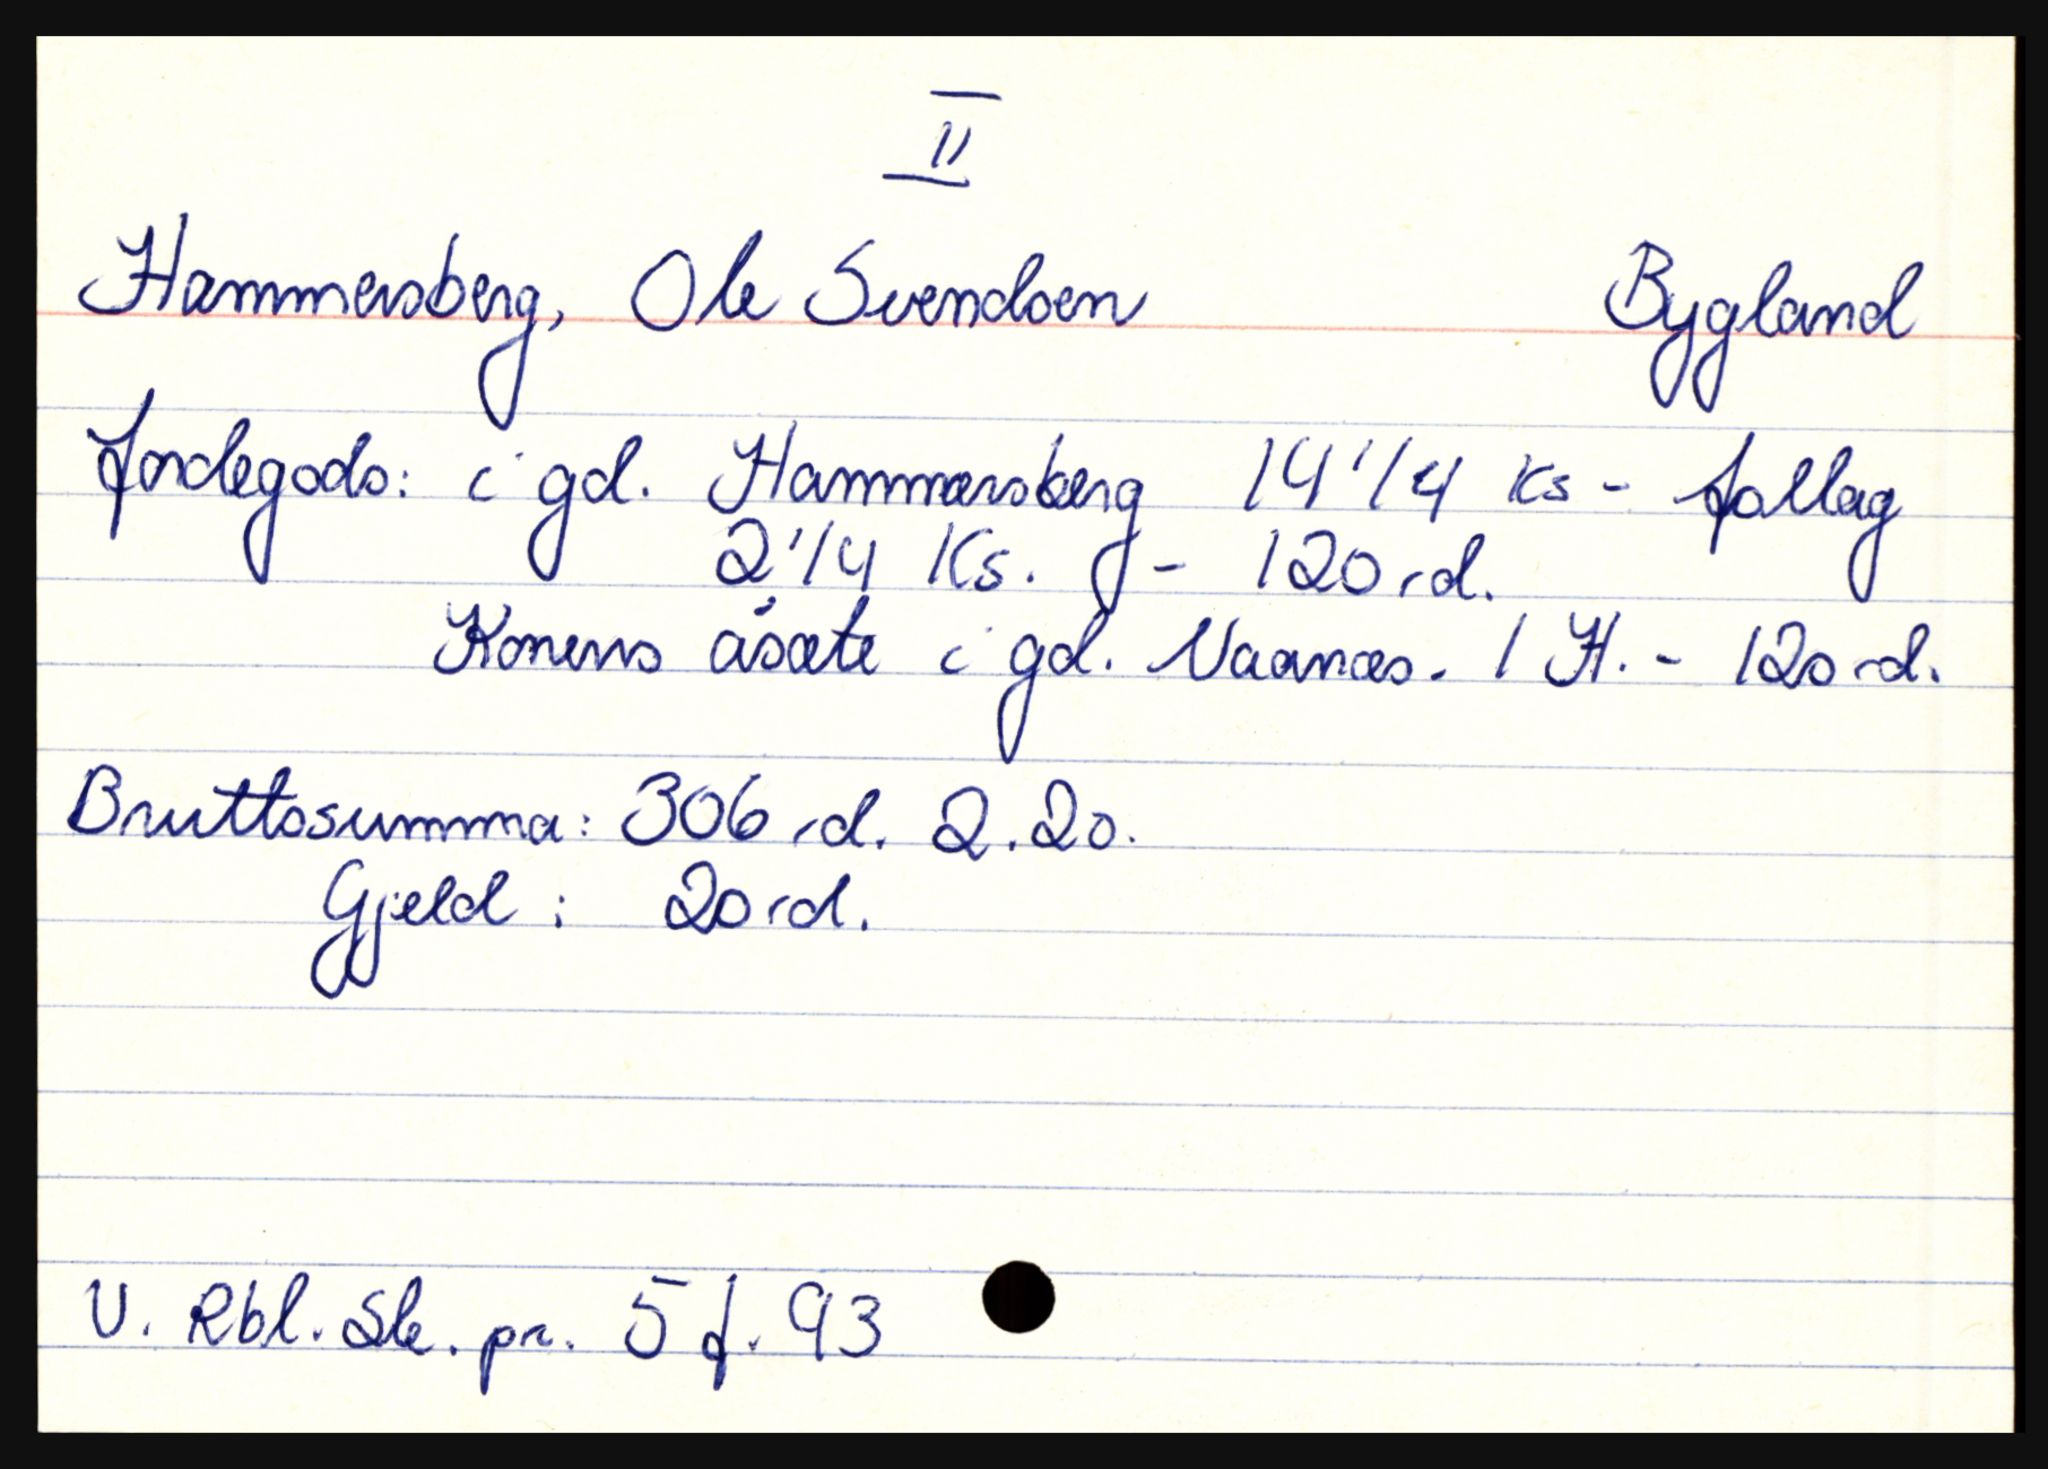 II
Hammersberg, Ole Svendsen Bygland
Jordegods: i gd. Hammersberg 14 1/4 Ks - follag
2 1/4 Ks. - 120 rd.
Konens åsæte i gd. Naanæs. 1 H. - 120 rd.
Bruttosumma: 306 rd. 2.20.
Gjeld: 20 rd.
V. Rbl. Sk. pr. 5 f. 93